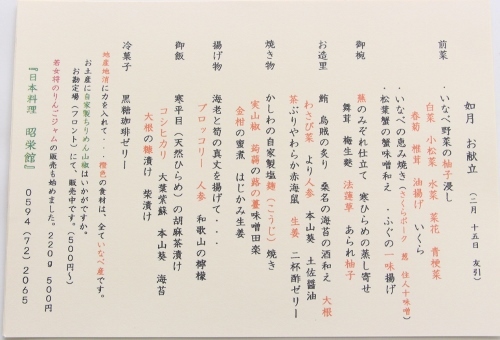 如月 お献立 (二月 十五日 友引)
前菜 ・いなべ野菜の柚子浸し
白菜 小松菜 水菜 菜花 青梗菜
春菊 椎茸 油揚げ いくら
・いなべの恵み焼き(さくらポーク 葱 住人十味噌)
・松葉蟹の蟹味噌和え ・ふぐの一味揚げ
御椀 蕪のみぞれ仕立て 寒ひらめの蒸し寄せ
舞茸 梅生麩 法蓮草 あられ柚子
お造里 鮪 烏賊の炙り 桑名の海苔の酒和え 大根
わさび菜 より人参 本山葵 土佐醤油
茶ぶりやわらか赤海鼠 生姜 二杯酢ゼリー
焼き物 かしわの自家製塩麹(こうじ)焼き
実山椒 蒟蒻の蕗の薹味噌田楽
金柑の蜜煮 はじかみ生姜
揚げ物 海老と筍の真丈を揚げて・・・
ブロッコリー 人参 和歌山の檸檬
御飯 寒平目(天然ひらめ)の胡麻茶漬け
コシヒカリ 大葉紫蘇 本山葵 海苔
大根の糠漬け 柴漬け
冷菓子 黒糖珈琲ゼリー
地産地消に力を入れて・・・橙色の食材は、全ていなべ産です。
お土産に自家製ちりめん山椒はいかがですか。
お勘定場(フロント)にて、販売中です。(500円~)
若女将のりんごジャムの販売も始めました。220g 500円
『日本料理 昭栄館』 0594(72)2065